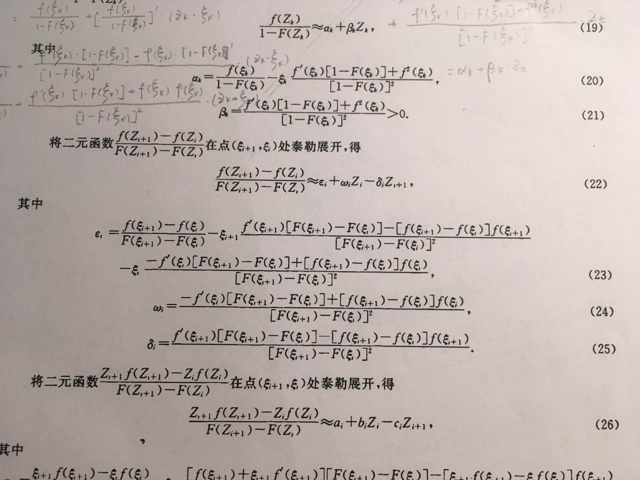 f(Z_k)/(1-F(Z_k)) ≈ α_k+β_kZ_k, (19)
其中
α_k = f(ξ_k)/(1-F(ξ_k)) - ξ_k (f′(ξ_k)[1-F(ξ_k)]+f²(ξ_k))/[1-F(ξ_k)]², (20)
β_k = (f′(ξ_k)[1-F(ξ_k)]+f²(ξ_k))/[1-F(ξ_k)]² >0. (21)
将二元函数 (f(Z_{i+1})-f(Z_i))/(F(Z_{i+1})-F(Z_i)) 在点(ξ_{i+1},ξ_i)处泰勒展开,得
(f(Z_{i+1})-f(Z_i))/(F(Z_{i+1})-F(Z_i)) ≈ ε_i+ω_iZ_i-δ_iZ_{i+1}, (22)
其中
ε_i = (f(ξ_{i+1})-f(ξ_i))/(F(ξ_{i+1})-F(ξ_i)) - ξ_{i+1} (f′(ξ_{i+1})[F(ξ_{i+1})-F(ξ_i)]-[f(ξ_{i+1})-f(ξ_i)]f(ξ_{i+1}))/[F(ξ_{i+1})-F(ξ_i)]²
-ξ_i (-f′(ξ_i)[F(ξ_{i+1})-F(ξ_i)]+[f(ξ_{i+1})-f(ξ_i)]f(ξ_i))/[F(ξ_{i+1})-F(ξ_i)]², (23)
ω_i = (-f′(ξ_i)[F(ξ_{i+1})-F(ξ_i)]+[f(ξ_{i+1})-f(ξ_i)]f(ξ_i))/[F(ξ_{i+1})-F(ξ_i)]², (24)
δ_i = (f′(ξ_{i+1})[F(ξ_{i+1})-F(ξ_i)]-[f(ξ_{i+1})-f(ξ_i)]f(ξ_{i+1}))/[F(ξ_{i+1})-F(ξ_i)]². (25)
将二元函数 (Z_{i+1}f(Z_{i+1})-Z_if(Z_i))/(F(Z_{i+1})-F(Z_i)) 在点(ξ_{i+1},ξ_i)处泰勒展开,得
(Z_{i+1}f(Z_{i+1})-Z_if(Z_i))/(F(Z_{i+1})-F(Z_i)) ≈ a_i+b_iZ_i-c_iZ_{i+1}, (26)
其中
ξ_{i+1}f(ξ_{i+1})-ξ_if(ξ_i) [f(ξ_{i+1})+ξ_{i+1}f′(ξ_{i+1})][F(ξ_{i+1})-F(ξ_i)]-[ξ_{i+1}f(ξ_{i+1})-ξ_if(ξ_i)]f(ξ_{i+1})